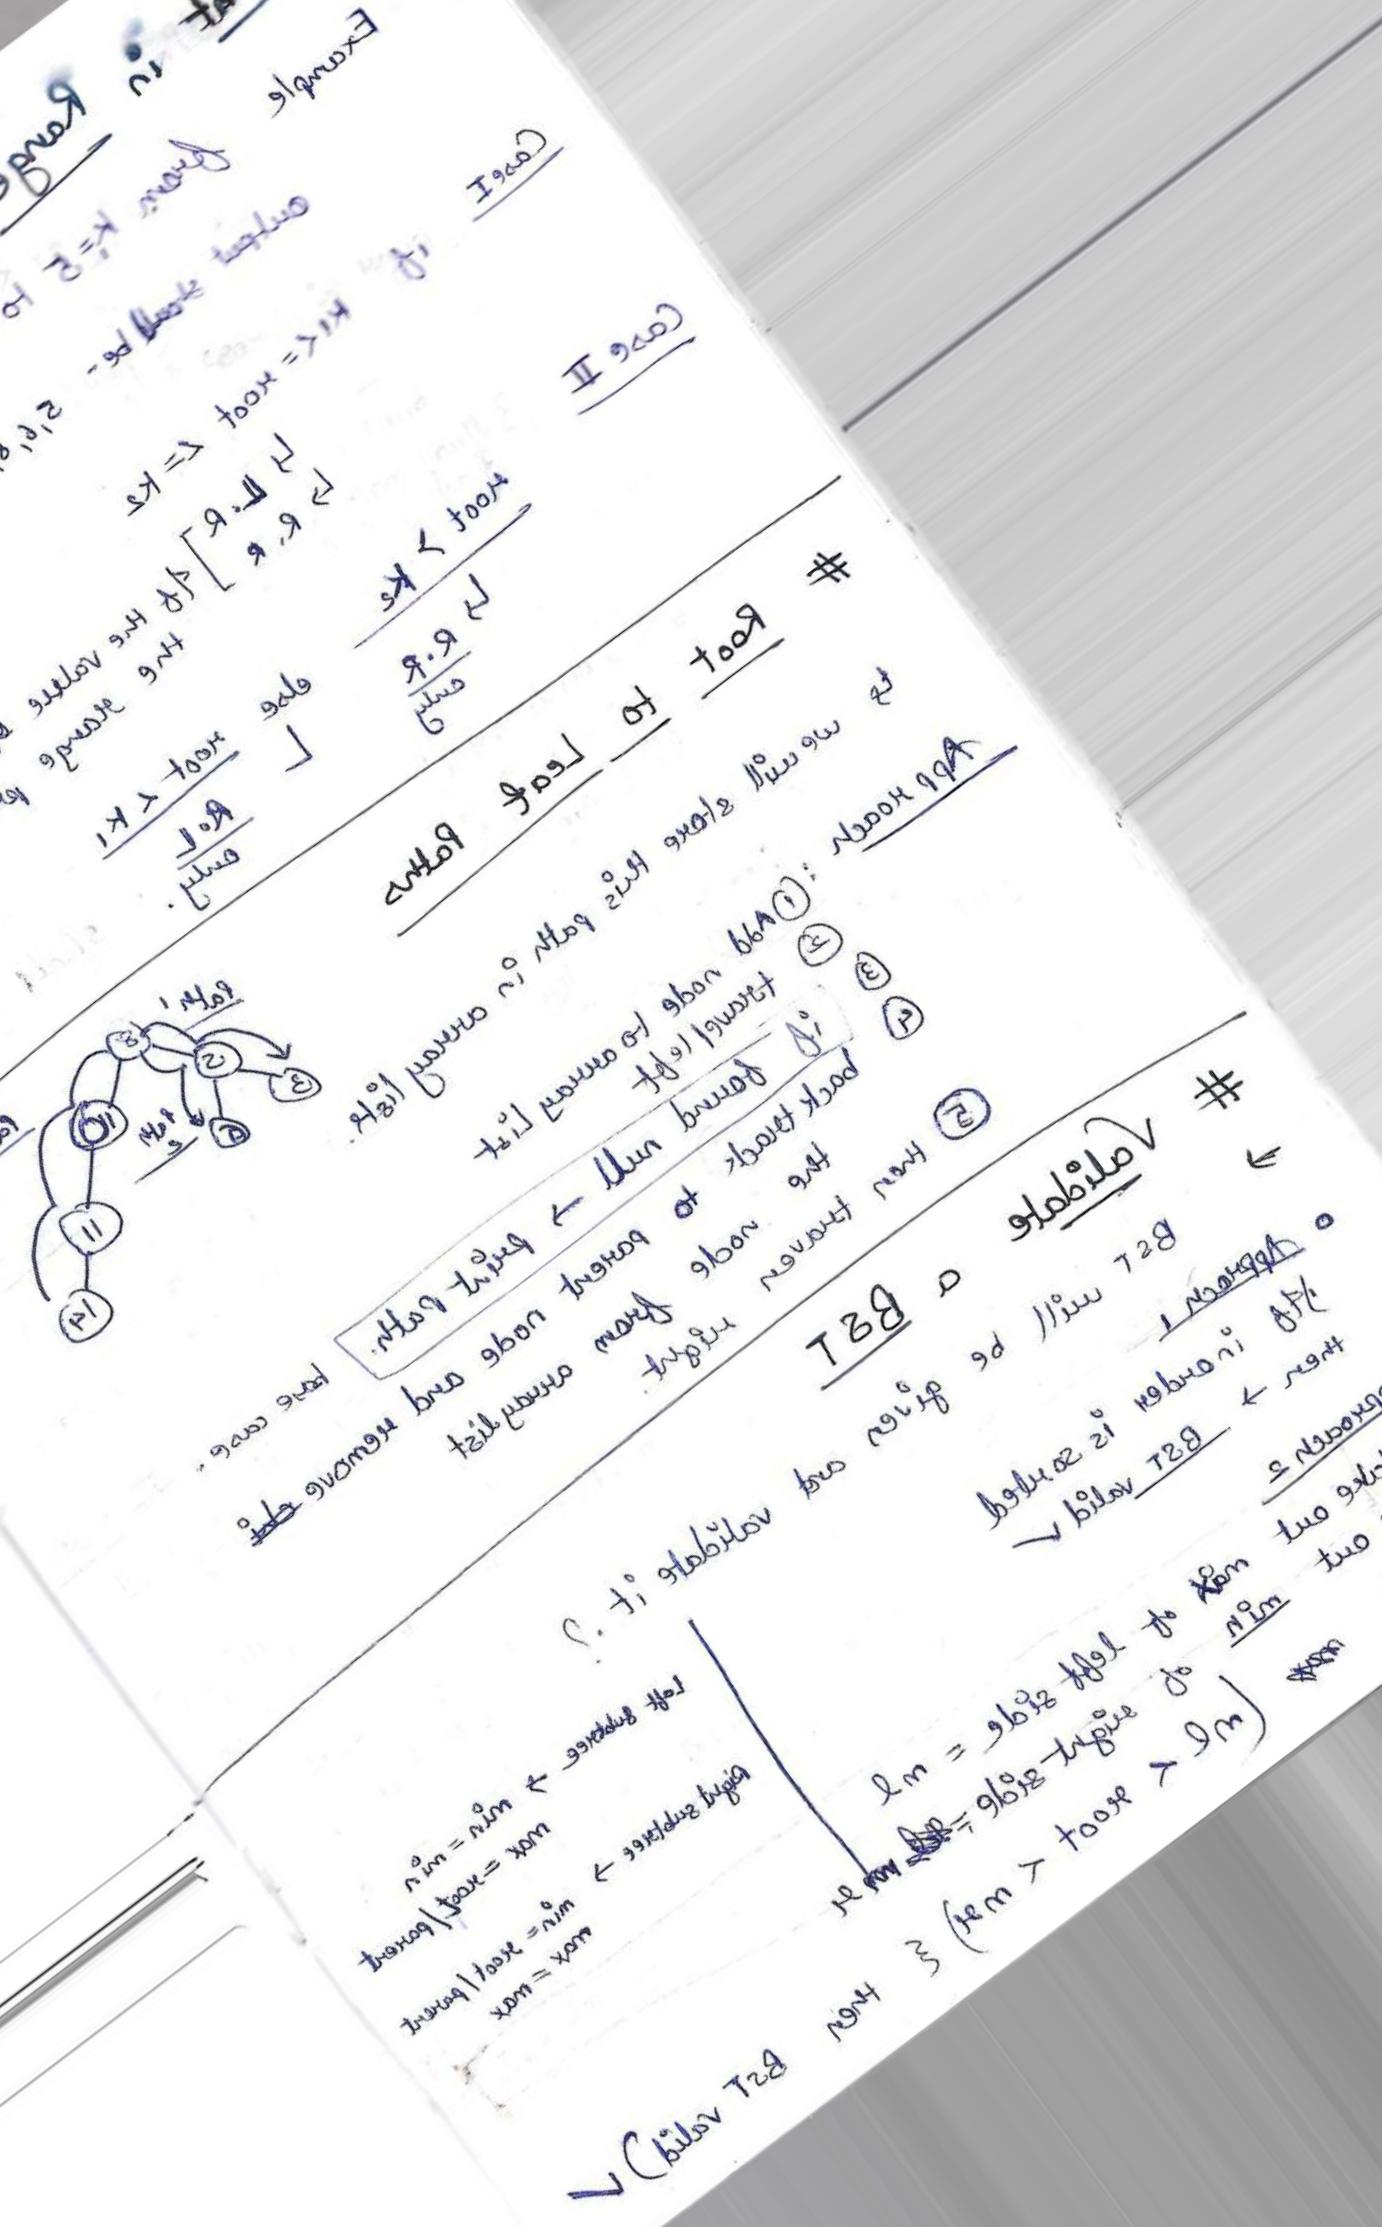 in Range
Example
from K1=5 to
output should be - 5, 6, 8,
Case I
if K1 <= root <= K2
↳ L.R
↳ R.R
] if the value
the range
Case II
root > K2
↳ R.R
only
else
root < K1
R.L
only.
# Root to Leaf Paths
we will store this path in array list.
Approach : ① Add node to array list
② travel left
③ if found null → print path. base case.
④ back track to parent node and remove
the node from array list
⑤ then travers right.
Path 1
Path 2
8
5
3
6
10
11
14
# Validate a BST
→ BST will be given and validate it ?
• Approach 1
if inorder is sorted
then → BST valid ✓
Approach 2
take out max of left side = ml
out min of right side = mr
(ml < root < mr) } then BST valid) ✓
Left subtree → min = min
max = root/parent
right subtree → min = root/parent
max = max